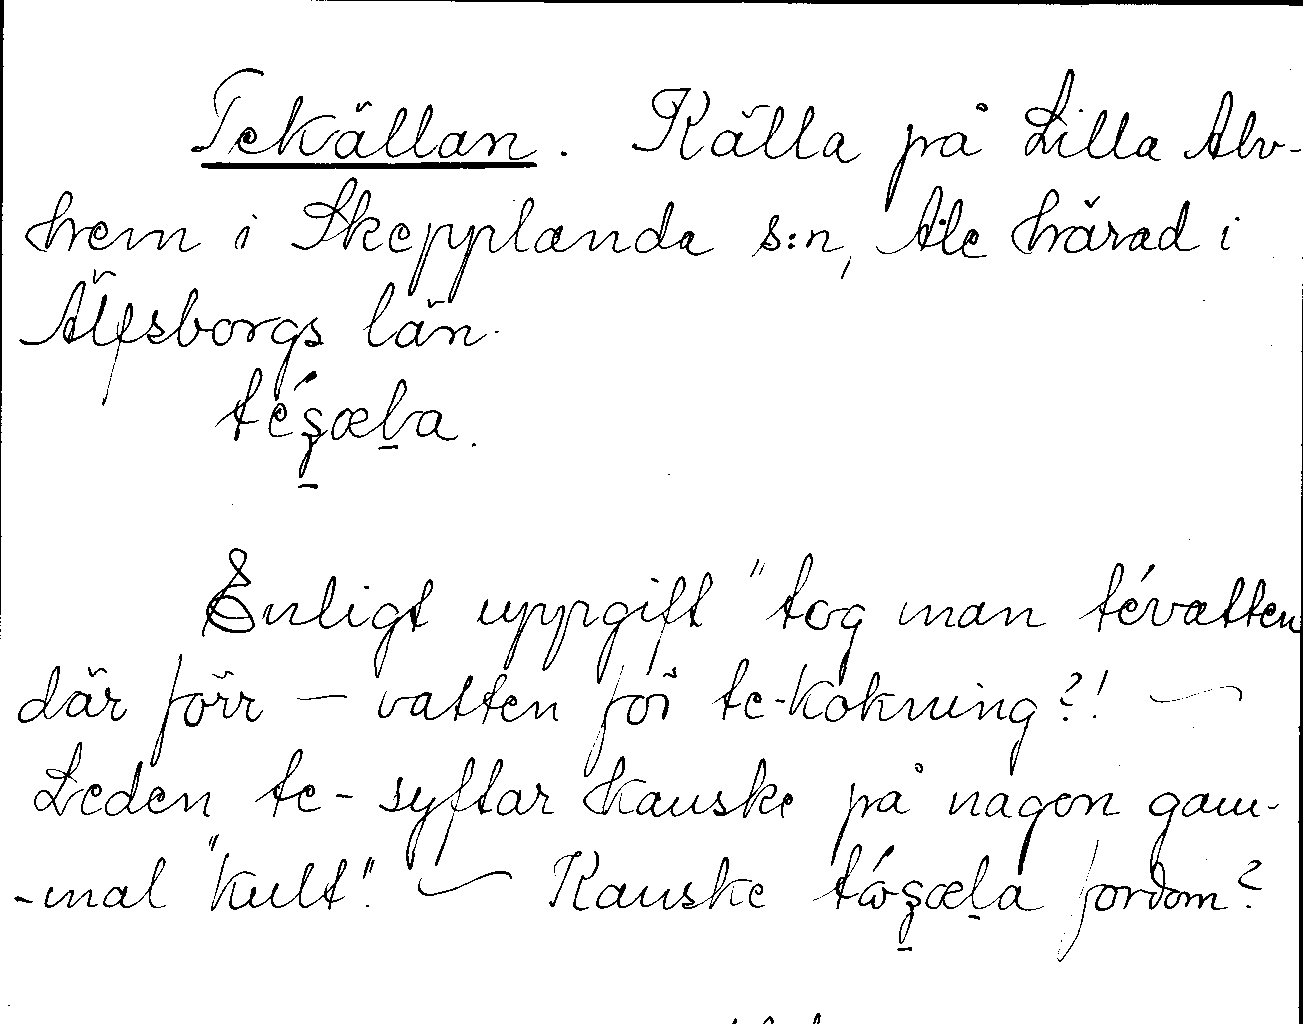 Tekällan. Källa på Lilla Alv-
hem i Skepplanda s:n, Ale härad i
Älfsborgs län.
Enligt uppgift "tog man tévatten
där förr – vatten för te-kokning?! –
Leden te- syftar kanske på någon gam-
-mal "kult". – Kanske fordom?